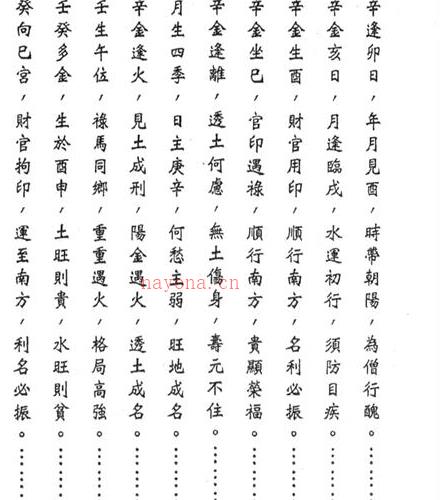 辛逢卯日，年月見酉，時帶朝陽，為僧行醜。………
辛金亥日，月逢臨戌，水運初行，須防目疾。………
辛金生酉，財官用印，順行南方，名利必振。………
辛金坐巳，官印遇祿，順行南方，貴顯榮福。………
辛金逢離，透土何慮，無土傷身，壽元不住。………
月生四季，日主庚辛，何愁主弱，旺地成名。………
辛金逢火，見土成刑，陽金遇火，透土成名。………
壬生午位，祿馬同鄉，重重遇火，格局高強。………
壬癸多金，生於酉申，土旺則貴，水旺則貧。………
癸向巳宮，財官拘印，運至南方，利名必振。………
hayona.cn